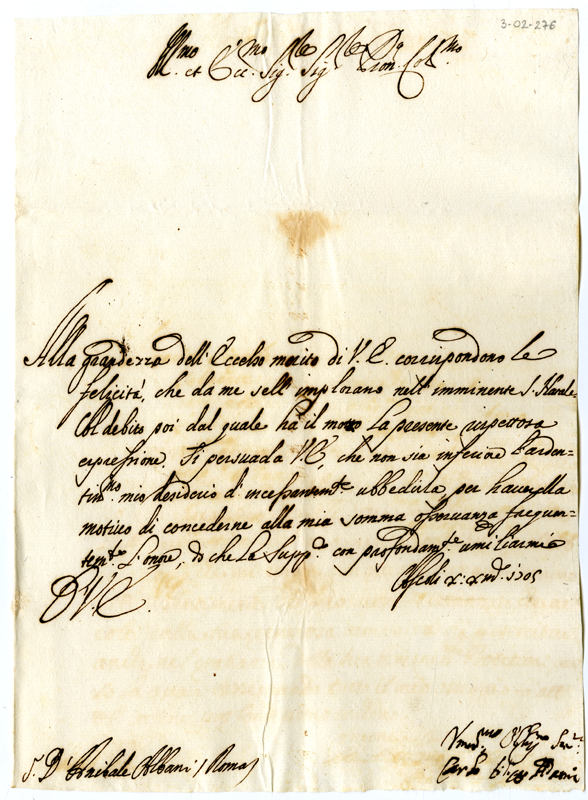 3-02-276
Ill.mo et Ecc.mo Sig.re Sig.re P.ron Col.mo
Alla grandezza dell'Eccelso merito di V.E. corrispondono le
felicità, che da me se ll'implorano nell'imminente S. Natale
Col debito poi dal quale ha il motto la presente rispettosa
espressione. Si persuada V.E., che non sia inferiore l'arden-
tiss.mo mio desiderio d'incessantem.te ubbedirla, per haver ella
motivo di concederne alla mia somma osservanza frequen-
tem.te l'onore, do che la Supp.co con profondam.te umiliarmi
D.V.E.
Ascoli X: xmb. 1705
S. D. Anibale Albani / Roma /
Serv.re
Carlo